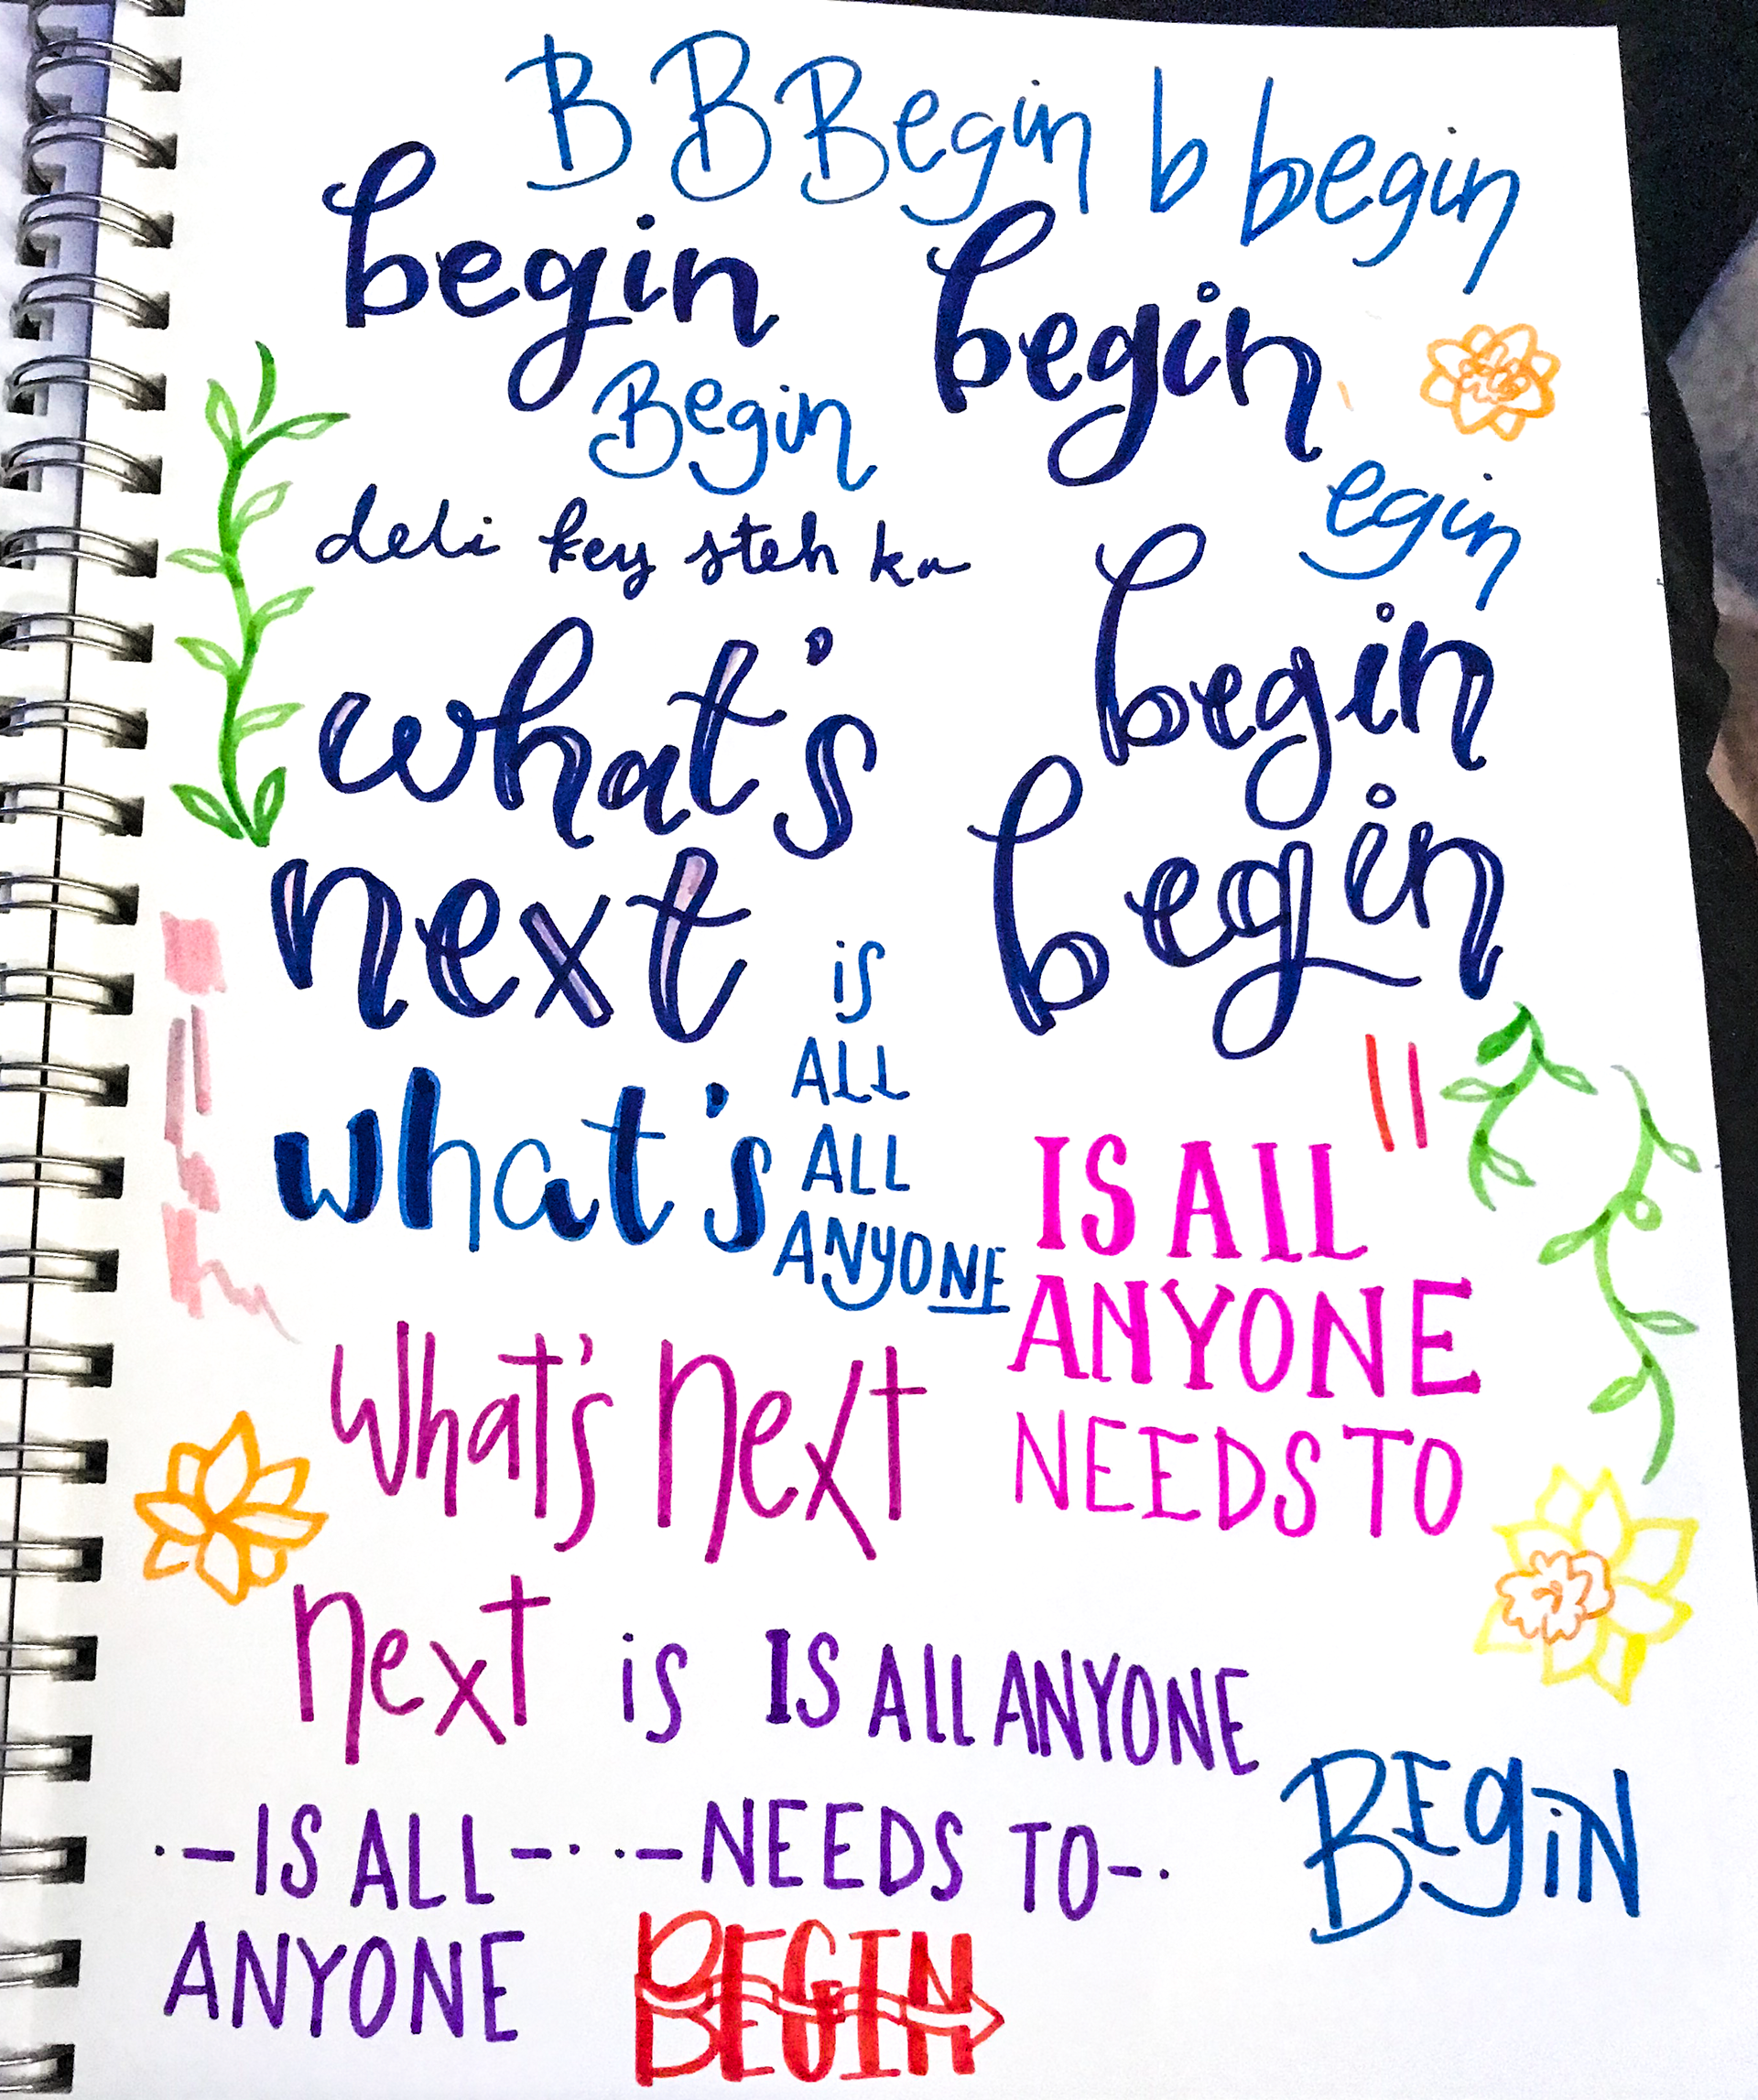 B B Begin b begin
begin begin
Begin
egin
deli key steh ka
begin
what's
begin
next
is
ALL
what's
ALL
IS ALL
ANYONE
ANYONE
what's next
NEEDS TO
next is IS ALL ANYONE
BEGIN
·-IS ALL-· ·-NEEDS TO-·
ANYONE
BEGIN